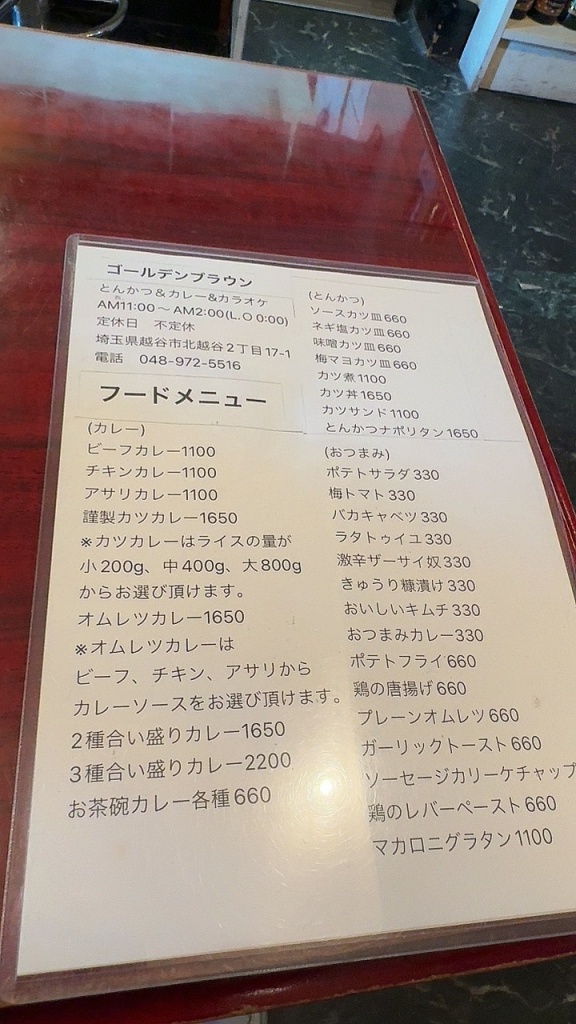 ゴールデンブラウン
とんかつ&カレー&カラオケ
AM11:00〜AM2:00(L.O 0:00)
定休日　不定休
埼玉県越谷市北越谷2丁目17-1
電話　048-972-5516
フードメニュー
(カレー)
ビーフカレー1100
チキンカレー1100
アサリカレー1100
謹製カツカレー1650
※カツカレーはライスの量が
小200g、中400g、大800g
からお選び頂けます。
オムレツカレー1650
※オムレツカレーは
ビーフ、チキン、アサリから
カレーソースをお選び頂けます。
2種合い盛りカレー1650
3種合い盛りカレー2200
お茶碗カレー各種660
(とんかつ)
ソースカツ皿660
ネギ塩カツ皿660
味噌カツ皿660
梅マヨカツ皿660
カツ煮1100
カツ丼1650
カツサンド1100
とんかつナポリタン1650
(おつまみ)
ポテトサラダ330
梅トマト330
バカキャベツ330
ラタトゥイユ330
激辛ザーサイ奴330
きゅうり糠漬け330
おいしいキムチ330
おつまみカレー330
ポテトフライ660
鶏の唐揚げ660
プレーンオムレツ660
ガーリックトースト660
ソーセージカリーケチャップ
鶏のレバーペースト660
マカロニグラタン1100